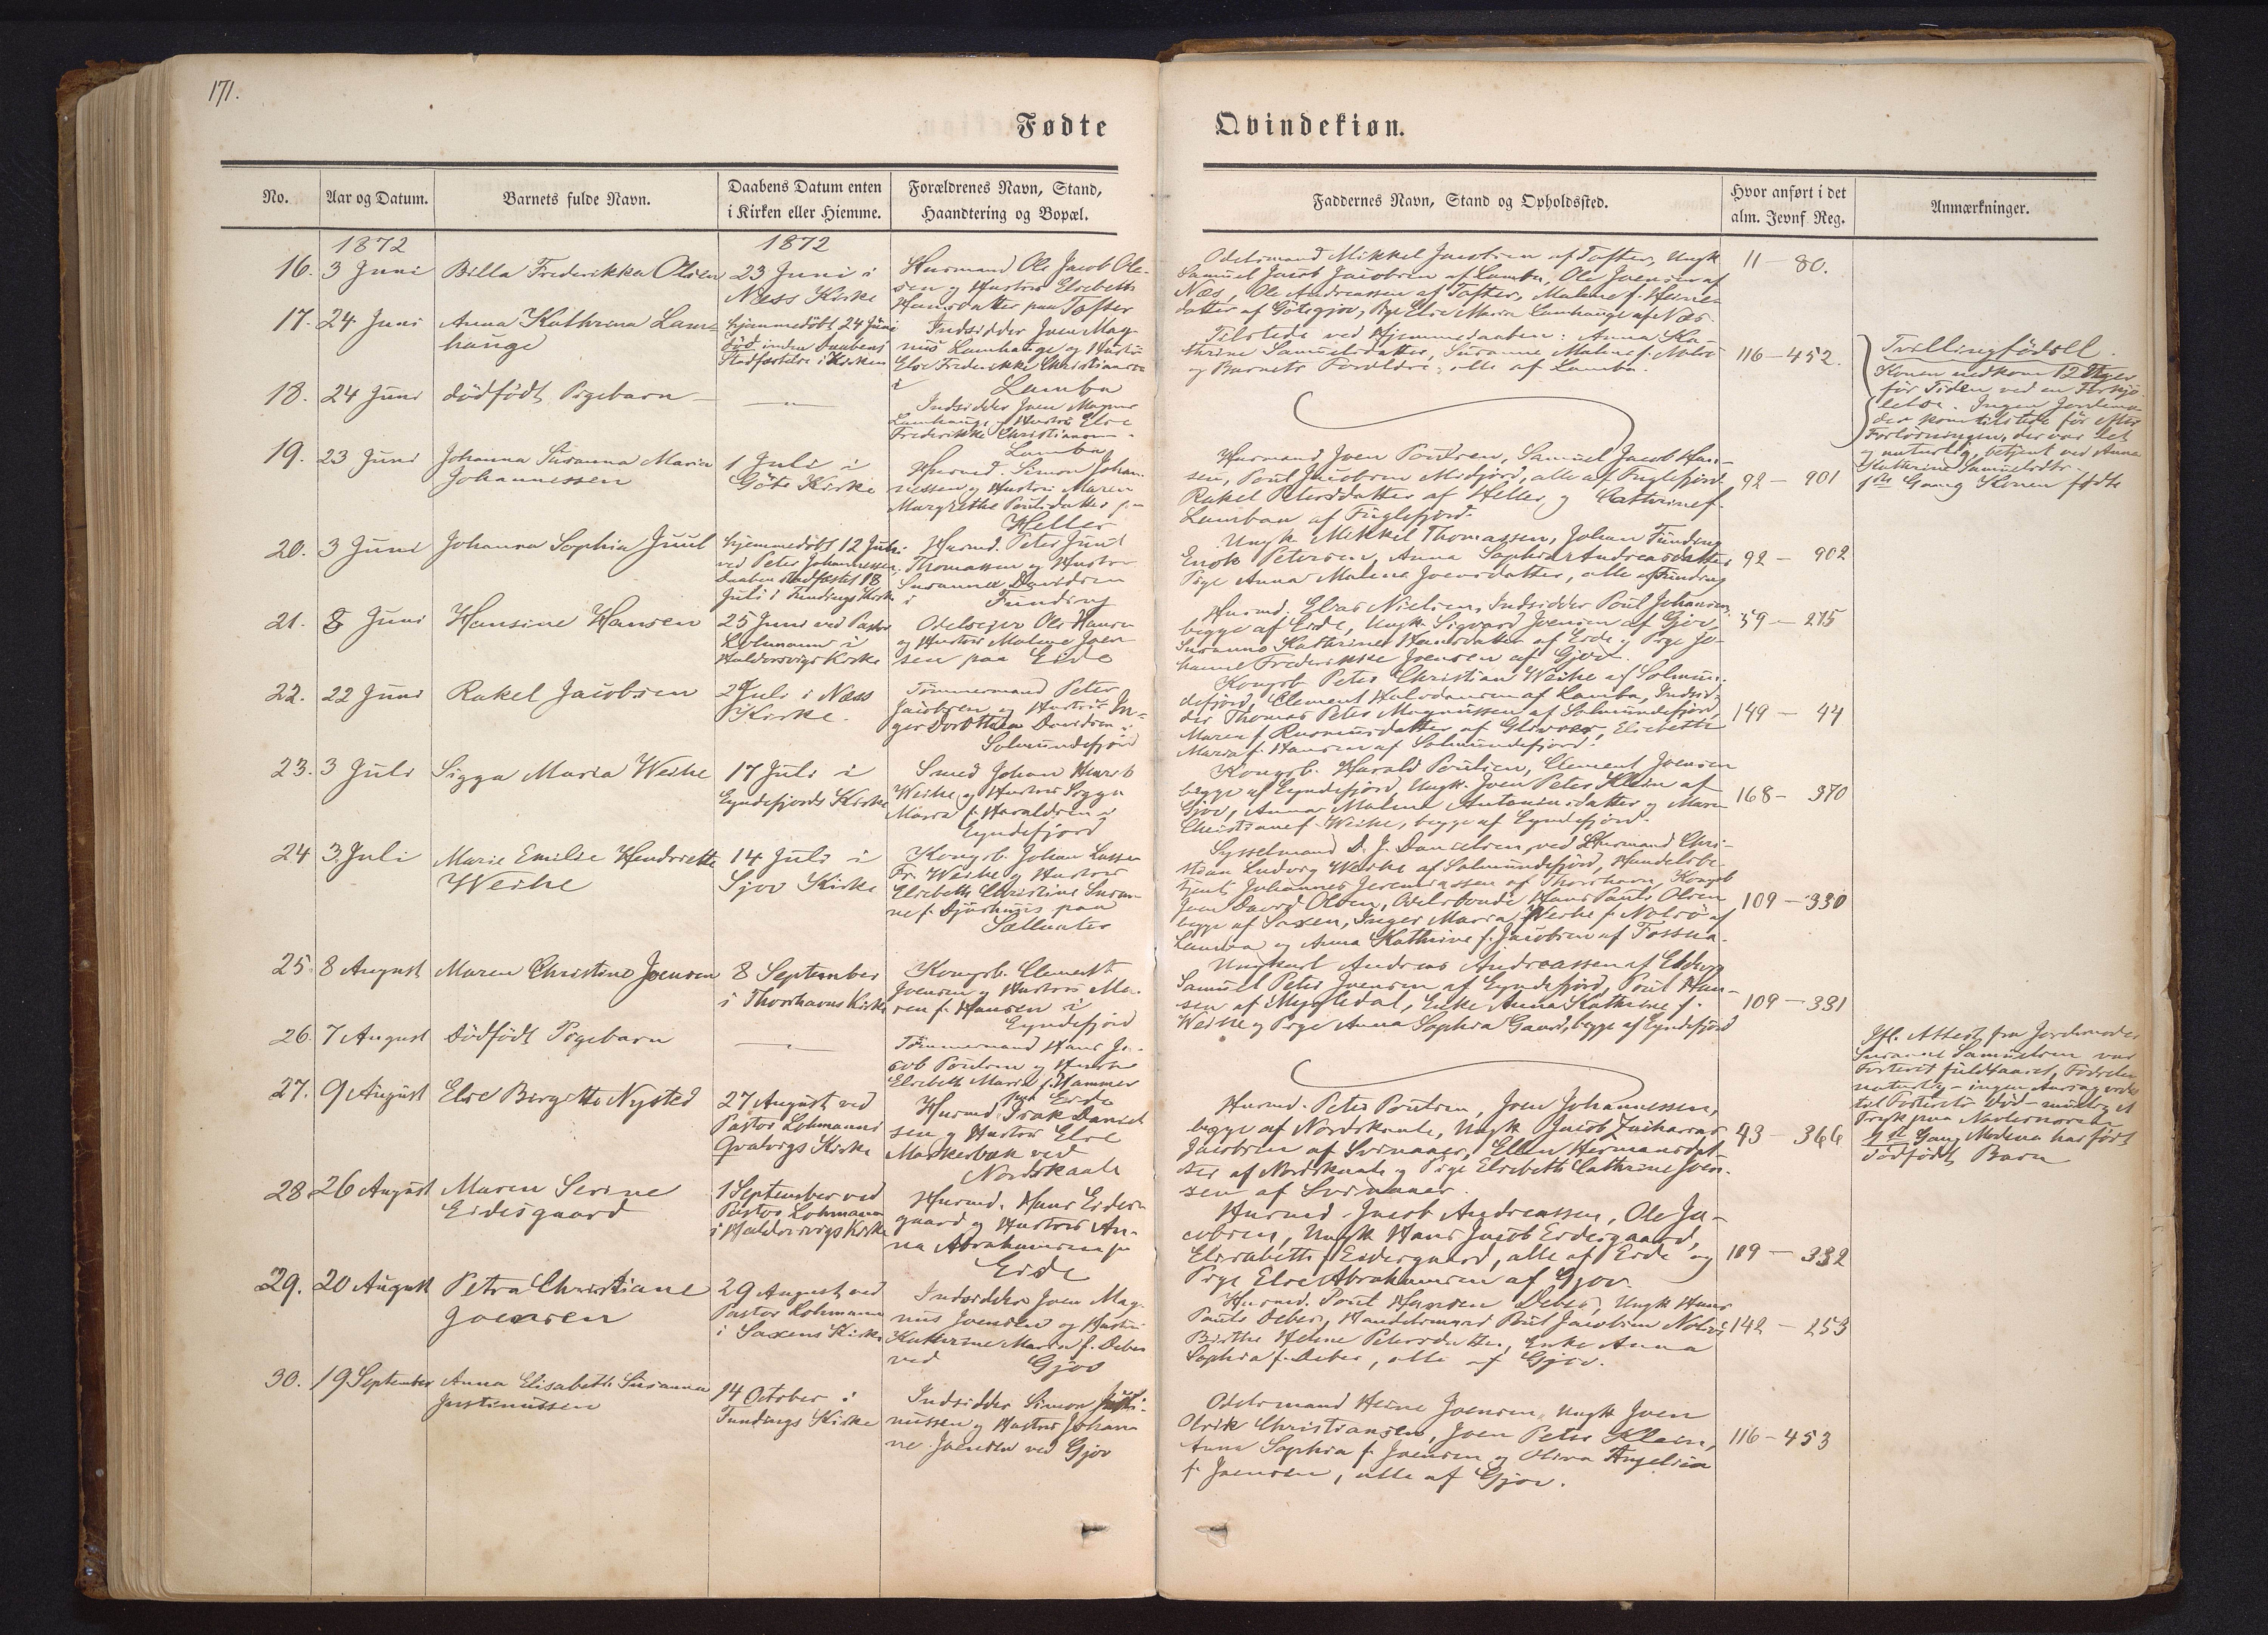 171.
Fødte
Qvindekiøn.
No.
Aar og Datum.
Barnets fulde Navn.
Daabens Datum enten
i Kirken eller Hiemme.
Forældrenes Navn, Stand,
Haandtering og Bopæl.
Faddernes Navn, Stand og Opholdssted.
Hvor anført i det
alm. Jevnf. Reg.
Anmærkninger.
1872
1872
16. 3 Juni
Billa Frederikka Olsen
23 Juni i
Næss Kirke
Husmand Ole Jacob Ole-
sen og Hustru Elsebeth
Hansdatter paa Tofter
Odelsmand Mikkel Jacobsen af Tofter, Ungk
Samuel Jacob Jacobsen af Lamba, Ole Joensen af
Næs, Ole Andreassen af Tofter, Malene f. Heine-
datter af Götegjov, Pige Else Maria Lamhauge af Næs.
11 - 80.
17. 24 Juni
Anna Kathrina Lam-
hauge
hjemmedöbt 24 Juni
död inden Daabens
Stadfæstelse i Kirken
Indsidder Joen Mag-
nus Lamhauge og Hustru
Else Frederikke Christiansen
i Lamba
Tilstede ved Hjemmedaaben: Anna Ka-
thrine Samuelsdatter, Susanne Malene f. Nolsö
og Barnets Forældre, alle af Lamba.
116 - 452.
Tvillingfödsel.
Konen nedkom 12 Uger
för Tiden ved en Forskjö-
lelse. Ingen Jordemo-
der kom tilstede för efter
Forlösningen, der var let
og naturlig, betjent ved Anna
Kathrine Samuelsdtr.
1ste Gang Konen födte
18. 24 Juni
dödfödt Pigebarn
Indsidder Joen Magnus
Lamhauge og Hustru Else
Frederikke Christiansen
Lamba
19. 23 Juni
Johanna Susanna Maria
Johannessen
1 Juli i
Göte Kirke
Husmd. Simon Johan-
nessen og Hustru Maren
Margrethe Poulsdatter
Heller
Husmand Joen Poulsen, Samuel Jacob Han-
sen, Poul Jacobsen Midjord, alle af Fuglefjord
Rakel Petersdatter af Heller og Cathrine f.
Lambaa af Fuglefjord.
92 - 901
20. 3 Juni
Johanna Sophia Juul
hjemmedöbt 12 Juli
ved Peter Johannessen,
daaben stadfæstet 18
Juli i Fundings Kirke
Husmd. Peter Juul
Thomassen og Hustru
Susanna Davidsen
i Funding
Ungk Mikkel Thomassen, Johan Funding
Enok Petersen, Anna Sophia Andreasdatter
Pige Anna Malene Joensdatter, alle af Funding
92 - 902
21. 8 Juni
Hansine Hansen
25 Juni ved Pastor
Lohmann i
Haldersvigs Kirke
Odelseier Ole Hansen
og Hustru Malene Joen-
sen paa Eide
Husmd. Elias Nielsen, Indsidder Poul Johansen
begge af Eide, Ungk. Sigvard Joensen af Gjov,
Susanne Kathrine Hansdatter af Eide og Pige Jo-
hanne Frederikke Joensen af Gjov.
59 - 275
22. 22 Juni
Rakel Jacobsen
2 Juli i Næss
Kirke.
Tömmermand Peter
Jacobsen og Hustru In-
ger Dorthea Davidsen i
Solmundefjord
Kongsb. Peter Christian Weihe af Solmun-
defjord, Clement Halvdansen af Lamba, Indsid-
der Thomas Peter Magnussen af Solmundefjord,
Maren f. Rasmusdatter af Glivrer, Elsebeth
Maria f. Hansen af Solmundefjord.
149 - 44
23. 3 Juli
Sigga Maria Weihe
17 Juli i
Eyndefjords Kirke
Smed Johan Henrik
Weihe og Hustru Sigga
Maria f. Haraldsen i
Eyndefjord
Kongsb. Harald Poulsen, Clement Joensen
begge af Eyndefjord, Ungk. Joen Peter Klein af
Gjov, Anna Malene Antoniusdatter og Maren
Christiane f. Weihe, begge af Eyndefjord.
168 - 370
24 3. Juli
Marie Emilie Hendrette
Weihe
14 Juli i
Sjov Kirke
Kongsb. Johan Lassen
Fr. Weihe og Hustru
Elsebeth Christine Susan-
ne f. Djurhuus paa
Sælletræ
Sysselmand D. J. Danielsen, ved Husmand Chri-
stian Ludvig Weihe af Solmundefjord, Handelsbe-
tjent Johannes Jeremiassen af Thorshavn, Kongsb
Joen David Olsen, Odelsbonde Hans Pauli Olsen
begge af Saxen, Inger Maria Weihe f. Nolsö af
Lamba og Anna Kathrine f. Jacobsen af Fossaa.
109 - 330
25. 8 August
Maren Christine Joensen
8 September
i Thorshavns Kirke
Kongsb. Clement
Joensen og Hustru Ma-
ren f. Hansen i
Eyndefjord
Ungkarl Andreas Andreassen af Eldevig
Samuel Peter Joensen af Eyndefjord, Poul Han-
sen af Mygledal, Enke Anna Kathrine f.
Weihe og Pige Anna Sophia Gaard, begge af Eyndefjord
109 - 331
26. 7 August
Dödfödt Pigebarn
Tömmermand Hans Ja-
cob Poulsen og Hustru
Elsebeth Maria f. Hammer
paa Eide
Ifl. Attest fra Jordemoder
Susanne Samuelsen var
Fosteret fuldbaaret, Födselen
naturlig - ingen Aarsag
til Fosterets död - muligt et
Tryk paa Navlesnoren
1ste Gang Moderen har födt
dödfödt Barn
27. 9 August
Else Birgitte Nysted
27 August ved
Pastor Lohmann i
Qvalvigs Kirke
Husmd. Isak Daniel-
sen og Hustru Else
Mørkerbæk ved
Nordskaale
Husmd. Peter Poulsen, Joen Johannessen,
begge af Nordskaale, Ungk Jacob Zacharias
Jacobsen af Svinaaer, Ellen Hermansdat-
ter af Nordskaale og Pige Elsebeth Cathrine Joen-
sen af Svinaaer.
43 - 366
28 26 August
Maren Serine
Eidesgaard
1 September ved
Pastor Lohmann
i Haldersvigs Kirke
Husmd. Hans Eides-
gaard og Hustru An-
na Abrahamsen paa
Eide
Husmd. Jacob Andreassen, Ole Ja-
cobsen, Ungk Hans Jacob Eidesgaard,
Elisabeth f. Eidesgaard, alle af Eide og
Pige Else Abrahamsen af Gjov.
109 - 332
29. 20 August
Petra Christiane
Joensen
29 August ved
Pastor Lohmann
i Saxens Kirke
Indsidder Joen Mag-
nus Joensen og Hustru
Kathrine Maria f. Debes
ved Gjov
Husmd. Poul Hansen Debes, Ungk Hans
Pauli Debes, Handelsmand Poul Jacobsen Nolsö
Birthe Helene Petersdatter, Enke Anna
Sophia f. Debes, alle af Gjov.
142 - 253
30. 19 September
Anna Elisabeth Susanna
Justinussen
14 October i
Fundings Kirke
Indsidder Simon Justi-
nussen og Hustru Johan-
ne Joensen ved Gjov
Odelsmand Heine Joensen, Ungk Joen
Olrik Christiansen, Joen Peter Klein,
Anna Sophia f. Joensen og Oliva Angelica
f. Joensen, alle af Gjov.
116 - 453